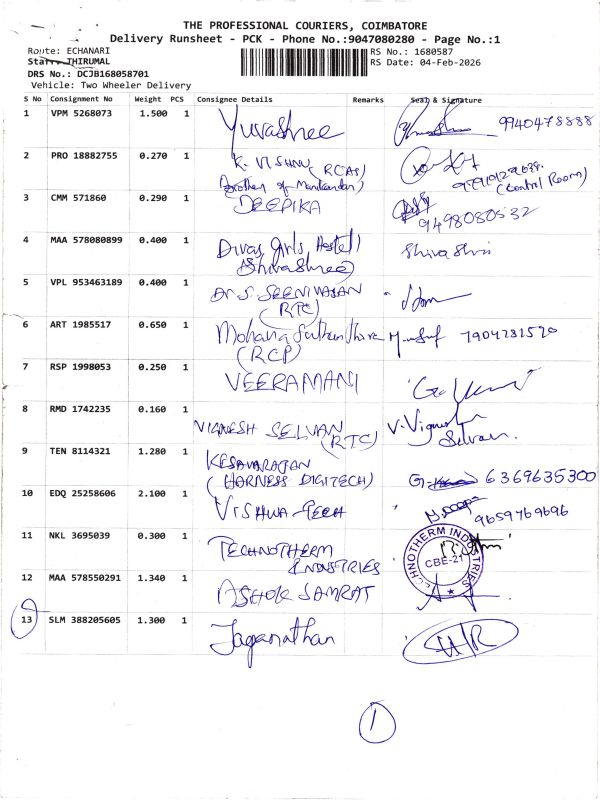 THE PROFESSIONAL COURIERS, COIMBATORE
Delivery Runsheet - PCK - Phone No.:9047080280 - Page No.:1
Route: ECHANARI
RS No.: 1680587
Staff: THIRUMAL
RS Date: 04-Feb-2026
DRS No.: DCJB168058701
Vehicle: Two Wheeler Delivery
S No Consignment No Weight PCS Consignee Details Remarks Seal & Signature
1 VPM 5268073 1.500 1 Yuvashree 9940478888
2 PRO 18882755 0.270 1 K. VISHNU (RCAS)
Brother of Manikandan) (Control Room)
3 CMM 571860 0.290 1 DEEPIKA 9498080532
4 MAA 578080899 0.400 1 Divas Girls Hostel
(Shivashree) Shiva Shri
5 VPL 953463189 0.400 1 Dr. S. SEENIVASAN
(RTC)
6 ART 1985517 0.650 1 Mohana 7904281520
(RCP)
7 RSP 1998053 0.250 1 VEERAMANI
8 RMD 1742235 0.160 1 VIGNESH SELVAN (RTC) V. Vignesh
Selvan.
9 TEN 8114321 1.280 1 KESAVARAJAN
(HARNESS DIGITECH) 6369635300
10 EDQ 25258606 2.100 1 VISHWA-TECH 9659769696
11 NKL 3695039 0.300 1 TECHNOTHERM
INDUSTRIES
TECHNOTHERM INDUSTRIES
CBE-21
12 MAA 578550291 1.340 1 ASHOK SAMRAT
13 SLM 388205605 1.300 1 Jaganathan
1